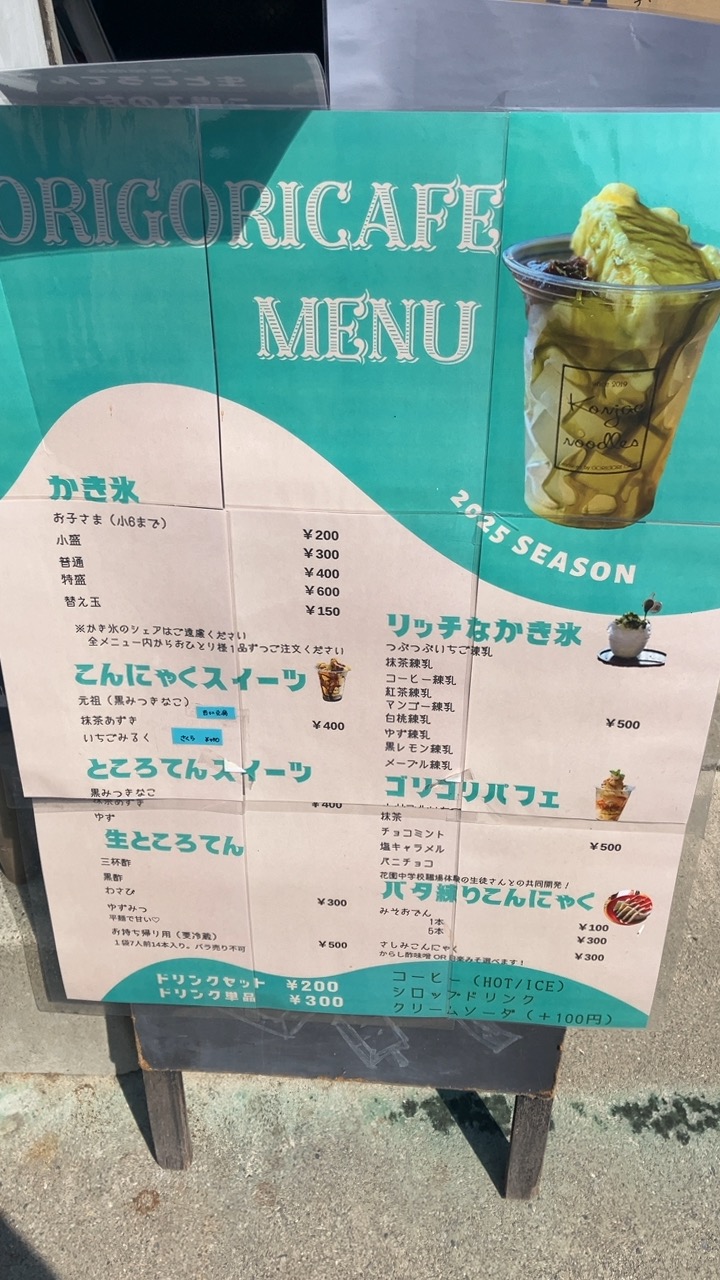 ORIGORICAFE
MENU
Konjac
noodles
2025 SEASON
かき氷
お子さま（小6まで） ¥200
小盛 ¥300
普通 ¥400
特盛 ¥600
替え玉 ¥150
※かき氷のシェアはご遠慮ください
全メニュー内からおひとり様1品ずつご注文ください
こんにゃくスイーツ
元祖（黒みつきなこ）
抹茶あずき ¥400
いちごみるく
ところてんスイーツ
黒みつきなこ
抹茶あずき ¥400
ゆず
生ところてん
三杯酢
黒酢
わさび
ゆずみつ ¥300
平麺で甘い♡
お持ち帰り用（要冷蔵）
1袋7人前14本入り。バラ売り不可 ¥500
リッチなかき氷
つぶつぶいちご練乳
抹茶練乳
コーヒー練乳
紅茶練乳
マンゴー練乳
白桃練乳 ¥500
ゆず練乳
黒レモン練乳
メープル練乳
ゴリゴリパフェ
抹茶
チョコミント
塩キャラメル ¥500
バニチョコ
花園中学校職場体験の生徒さんとの共同開発！
バタ練りこんにゃく
みそおでん
1本 ¥100
5本 ¥300
さしみこんにゃく
からし酢味噌 OR 味噌みそ選べます！ ¥300
ドリンクセット ¥200
ドリンク単品 ¥300
コーヒー（HOT/ICE）
シロップドリンク
クリームソーダ（＋100円）